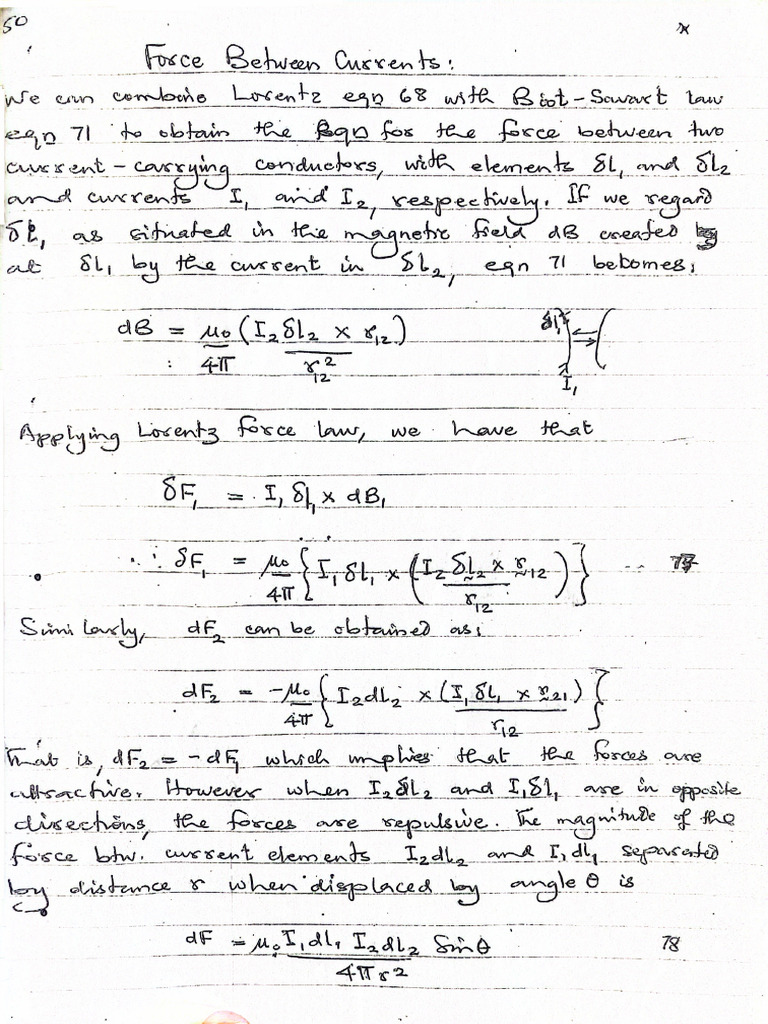 50
x
Force Between Currents:
We can combine Lorentz eqn 68 with Biot-Savart law
eqn 71 to obtain the Eqn for the force between two
current-carrying conductors, with elements δl₁ and δL₂
and currents I₁ and I₂, respectively. If we regard
δL₁ as situated in the magnetic field dB created by
at δL₁ by the current in δL₂, eqn 71 becomes;
dB = μ₀/4π (I₂ δL₂ × r₁₂ / r₁₂²)
δL₁
I₁
Applying Lorentz force law, we have that
δF₁ = I₁ δL₁ × dB₁
∴ δF₁ = μ₀/4π { I₁ δL₁ × (I₂ δL₂ × r₁₂ / r₁₂) } --
Similarly, dF₂ can be obtained as;
dF₂ = -μ₀/4π { I₂dL₂ × (I₁ δL₁ × r₂₁) / r₁₂ }
That is, dF₂ = -dF₁ which implies that the forces are
attractive. However when I₂δL₂ and I₁δL₁ are in opposite
directions, the forces are repulsive. The magnitude of the
force btw. current elements I₂dL₂ and I₁dL₁ separated
by distance r when displaced by angle θ is
dF = μ₀ I₁dL₁ I₂dL₂ Sinθ / 4πr² 78